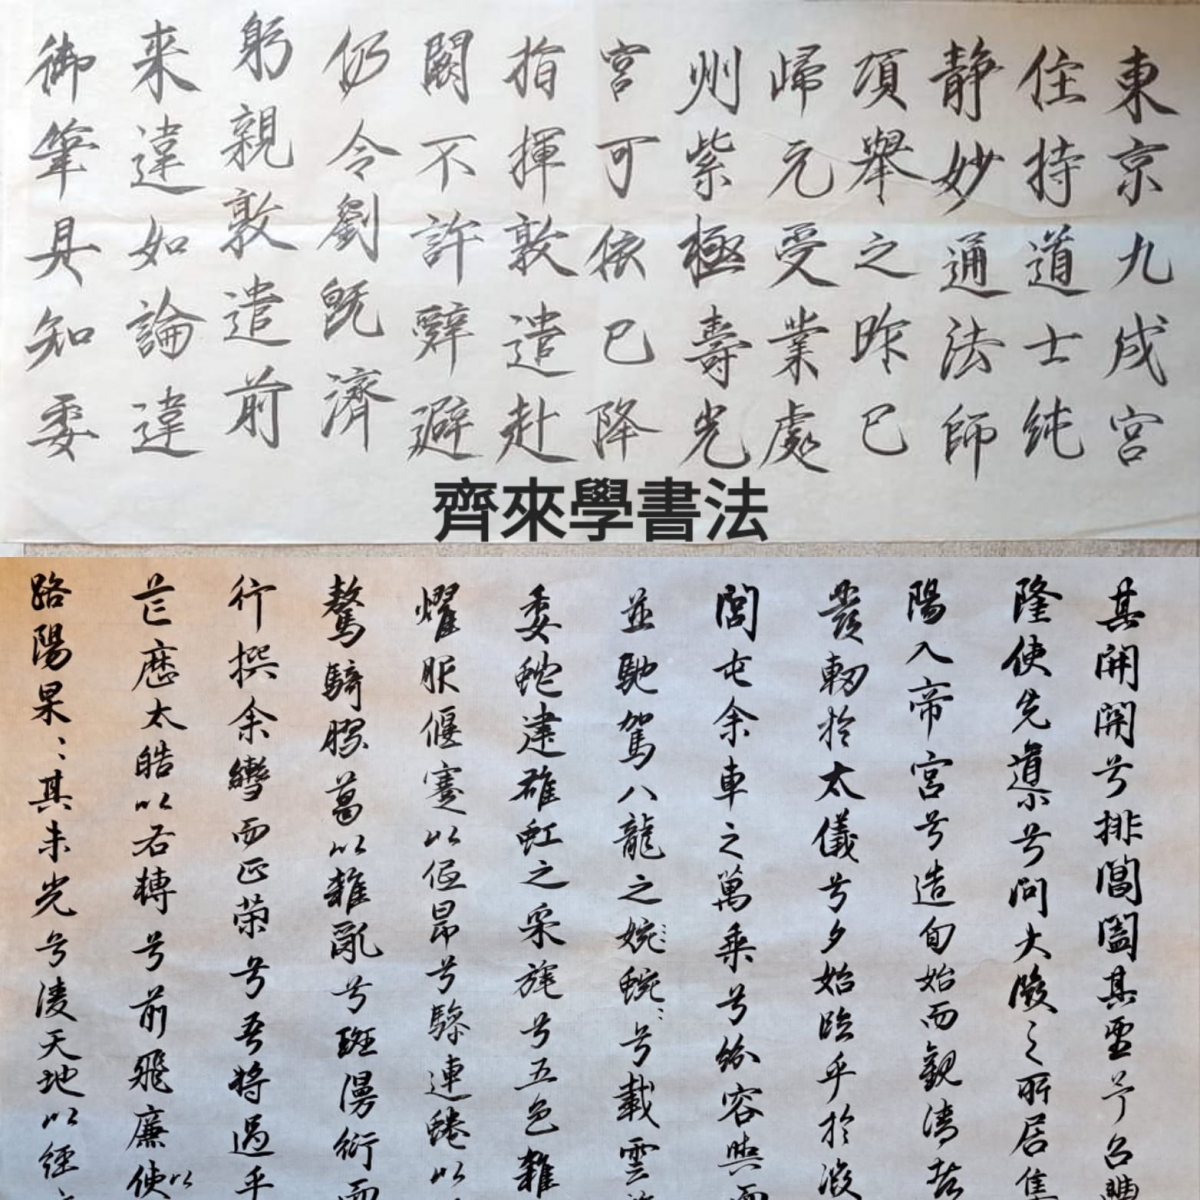 東京九成宮
住持道士純
静妙通法師
項舉之昨已
歸元受業處
州紫極壽光
宮可依已降
指揮敦遣赴
闕不許辭避
仍令劉既濟
躬親敦遣前
来違如論違
御筆具知委
齊來學書法
其開開兮排閶闔其望予召豐
隆使先導兮问大微之所居集
陽入帝宮兮造旬始而觀清都
發軔於太儀兮夕始臨乎於微
閭屯余車之萬乘兮紛容與而
並馳駕八龍之婉婉兮載雲旗
委蛇建雄虹之采旄兮五色雜
燿服偃蹇以低昂兮驂連蜷以
驁騎膠葛以雜亂兮斑漫衍而
行撰余轡而正策兮吾将過乎
芒歷太皓以右轉兮前飛廉以使
路陽杲々其未光兮凌天地以徑